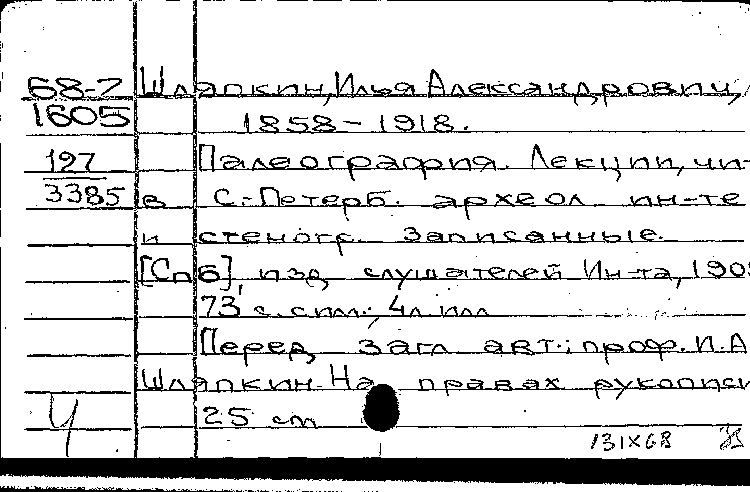 68-7 Шляпкин, Илья Александрович,
1605 1858-1918.
197 Палеография. Лекции, чи-
3385 в С.-Петерб. археол ин-те
и стеногр. записанные.
[Спб], изд слушателей Ин-та, 190
73 с. с илл., 4 л илл
Перед загл авт.: проф. И.А
Шляпкин. На правах рукописи
25 см
131X68